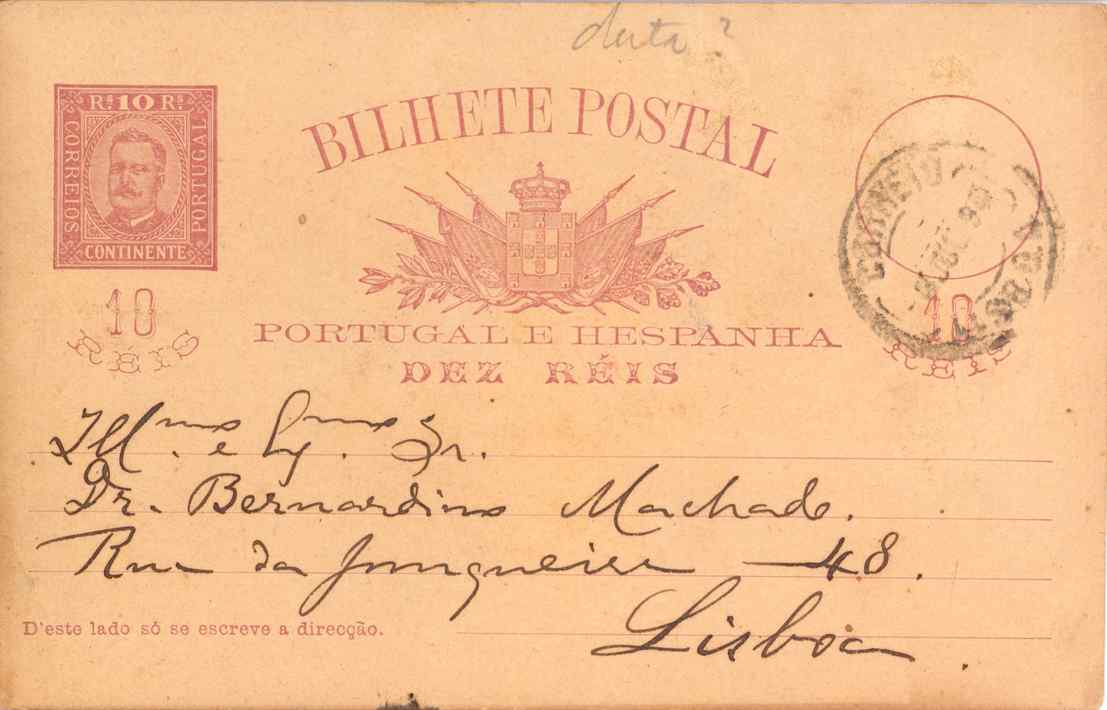 data?
Rs. 10 Rs.
CORREIOS
PORTUGAL
CONTINENTE
BILHETE POSTAL
10
RÉIS
PORTUGAL E HESPANHA
DEZ RÉIS
10
RÉIS
CORREIO
Illmo e Exmo Sr.
Dr. Bernardino Machado.
Rua da Junqueira — 48.
Lisboa.
D'este lado só se escreve a direcção.